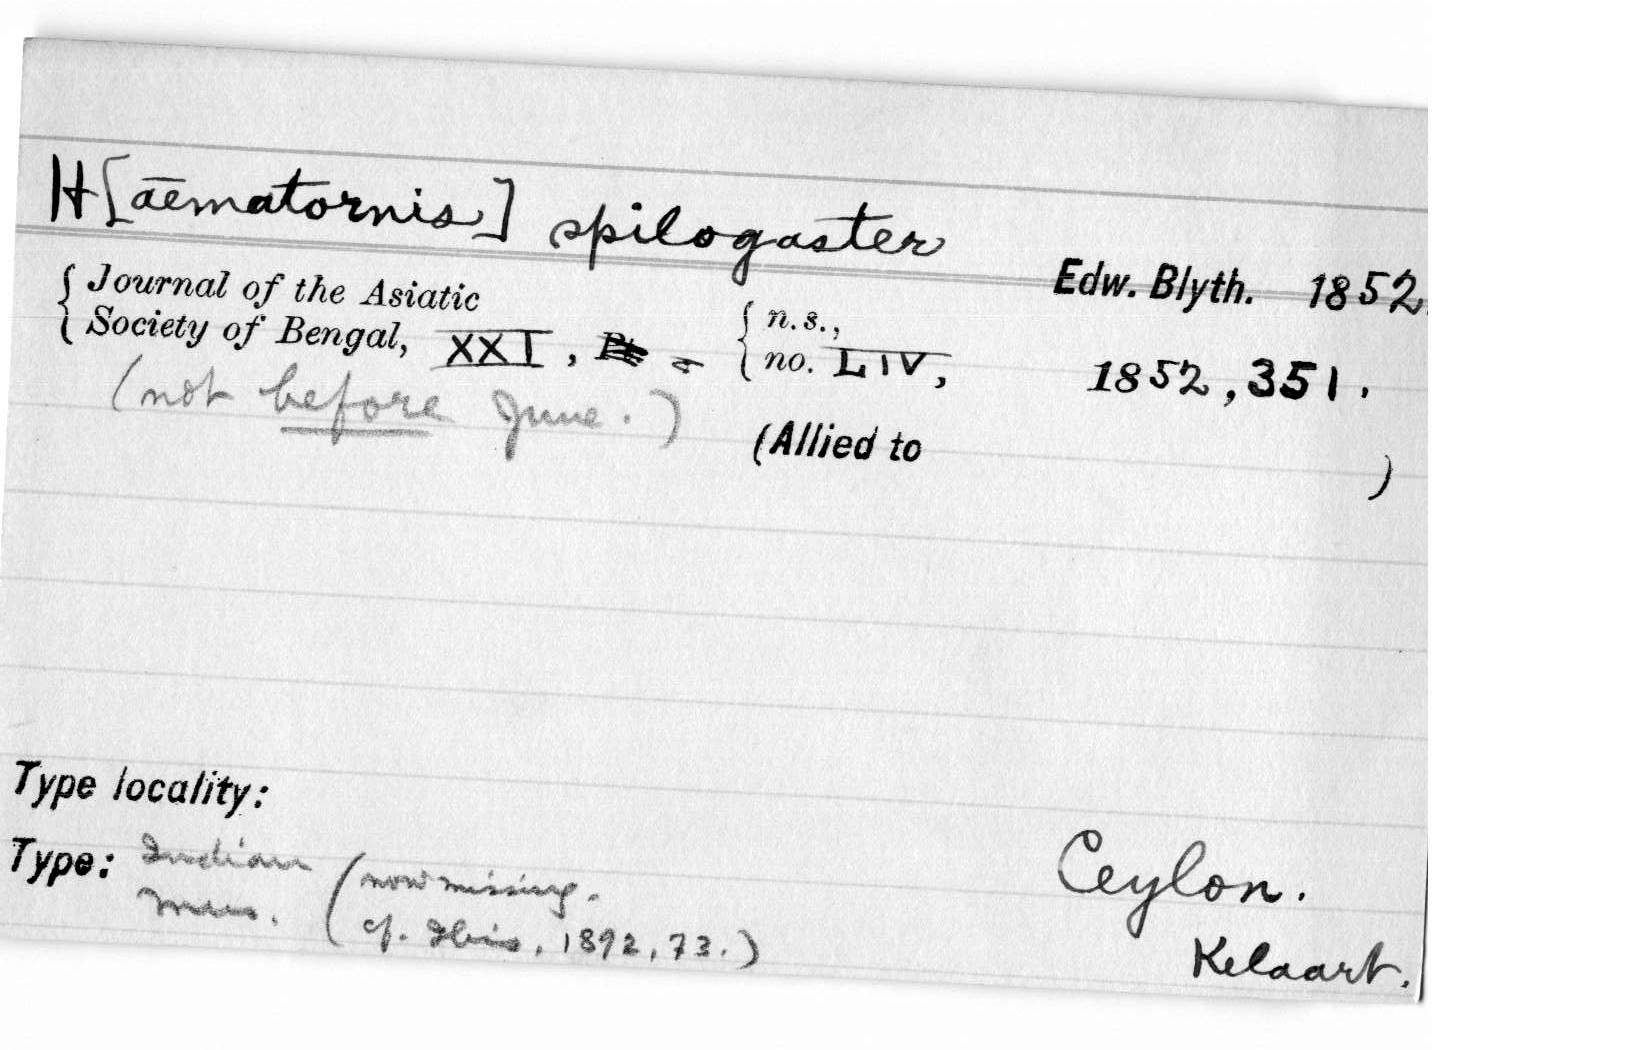 H[aematornis] spilogaster
Edw. Blyth. 1852.
{ Journal of the Asiatic
{ Society of Bengal, XXI,
{ n.s.,
{ no. LIV, 1852, 351.
(not before June.)
(Allied to )
Type locality: Ceylon.
Type: Indian Mus. (now missing.
cf. Ibis, 1892, 73.)
Kelaart.